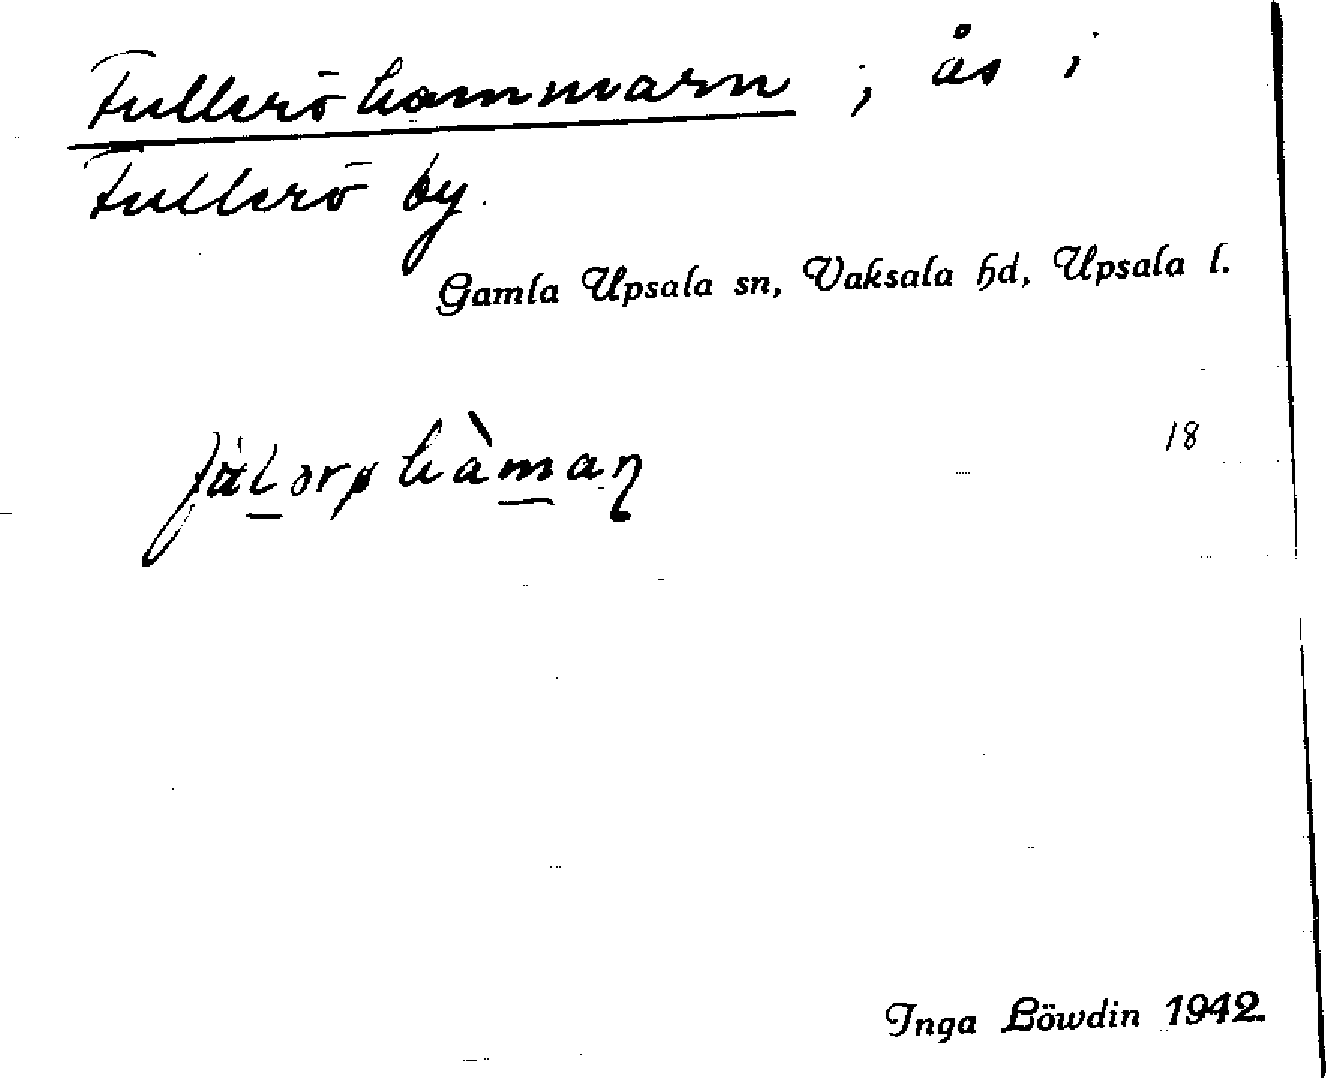 Fullerö hammarn ; ås i
Fullerö by.
Gamla Upsala sn, Vaksala hd, Upsala l.
18
Inga Löwdin 1942